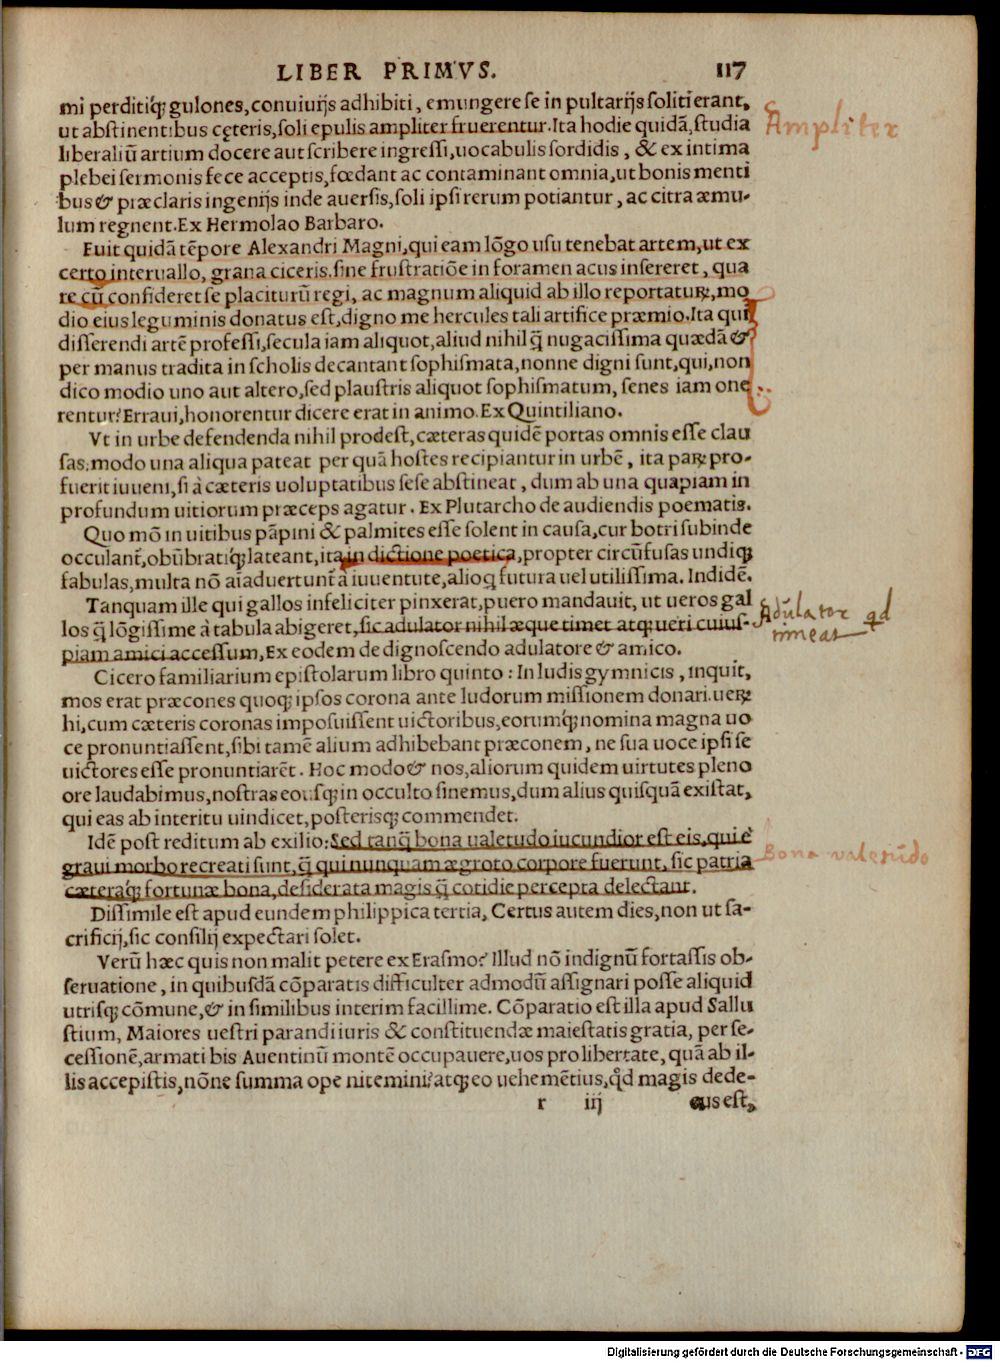 LIBER PRIMVS. 117
mi perditiq; gulones, conuiuijs adhibiti, emungere se in pultarijs soliti erant,
ut abstinentibus cęteris, soli epulis ampliter fruerentur. Ita hodie quidã, studia
liberaliũ artium docere aut scribere ingressi, uocabulis sordidis, & ex intima
plebei sermonis fece acceptis, fœdant ac contaminant omnia, ut bonis menti
bus & præclaris ingenijs inde auersis, soli ipsi rerum potiantur, ac citra æmu-
lum regnent. Ex Hermolao Barbaro.
Fuit quidã tẽpore Alexandri Magni, qui eam lõgo usu tenebat artem, ut ex
certo interuallo, grana ciceris sine frustratiõe in foramen acus insereret, qua
re cũ confideret se placiturũ regi, ac magnum aliquid ab illo reportatuꝝ, mo
dio eius leguminis donatus est, digno me hercules tali artifice præmio. Ita qui
disserendi artẽ professi, secula iam aliquot, aliud nihil q̃ nugacissima quædã &
per manus tradita in scholis decantant sophismata, nonne digni sunt, qui, non
dico modio uno aut altero, sed plaustris aliquot sophismatum, senes iam one
rentur? Erraui, honorentur dicere erat in animo. Ex Quintiliano.
Vt in urbe defendenda nihil prodest, cæteras quidẽ portas omnis esse clau
sas, modo una aliqua pateat per quã hostes recipiantur in urbẽ, ita paꝝ pro-
fuerit iuueni, si à cæteris uoluptatibus sese abstineat, dum ab una quapiam in
profundum uitiorum præceps agatur. Ex Plutarcho de audiendis poematis.
Quo mõ in uitibus pãpini & palmites esse solent in causa, cur botri subinde
occulant̃, obũbratiq; lateant, ita in dictione poetica, propter circũfusas undiq;
fabulas, multa nõ aĩaduertunt̃ à iuuentute, alioq̃ futura uel utilissima. Indidẽ.
Tanquam ille qui gallos infeliciter pinxerat, puero mandauit, ut ueros gal
los q̃ lõgissime à tabula abigeret, sic adulator nihil æque timet atq; ueri cuius-
piam amici accessum, Ex eodem de dignoscendo adulatore & amico.
Cicero familiarium epistolarum libro quinto: In ludis gymnicis, inquit,
mos erat præcones quoq; ipsos corona ante ludorum missionem donari. ueꝝ
hi, cum cæteris coronas imposuissent uictoribus, eorumq; nomina magna uo
ce pronuntiassent, sibi tamẽ alium adhibebant præconem, ne sua uoce ipsi se
uictores esse pronuntiarẽt. Hoc modo & nos, aliorum quidem uirtutes pleno
ore laudabimus, nostras eousq; in occulto sinemus, dum alius quisquã existat,
qui eas ab interitu uindicet, posterisq; commendet.
Idẽ post reditum ab exilio: Sed tanq̃ bona ualetudo iucundior est eis, qui è
graui morbo recreati sunt, q̃ qui nunquam ægroto corpore fuerunt, sic patria
cæteraq; fortunæ bona, desiderata magis q̃ cotidie percepta delectant.
Dissimile est apud eundem philippica tertia, Certus autem dies, non ut sa-
crificij, sic consilij expectari solet.
Verũ hæc quis non malit petere ex Erasmo? Illud nõ indignũ fortassis ob-
seruatione, in quibusdã cõparatis difficulter admodũ assignari posse aliquid
utrisq; cõmune, & in similibus interim facillime. Cõparatio est illa apud Sallu
stium, Maiores uestri parandi iuris & constituendæ maiestatis gratia, per se-
cessionẽ, armati bis Auentinũ montẽ occupauere, uos pro libertate, quã ab il-
lis accepistis, nõne summa ope nitemini? atq; eo uehemẽtius, qđ magis dede-
r iij cus est,
Ampliter
Adulator qd
timeat
Bona valetudo
Digitalisierung gefördert durch die Deutsche Forschungsgemeinschaft - DFG